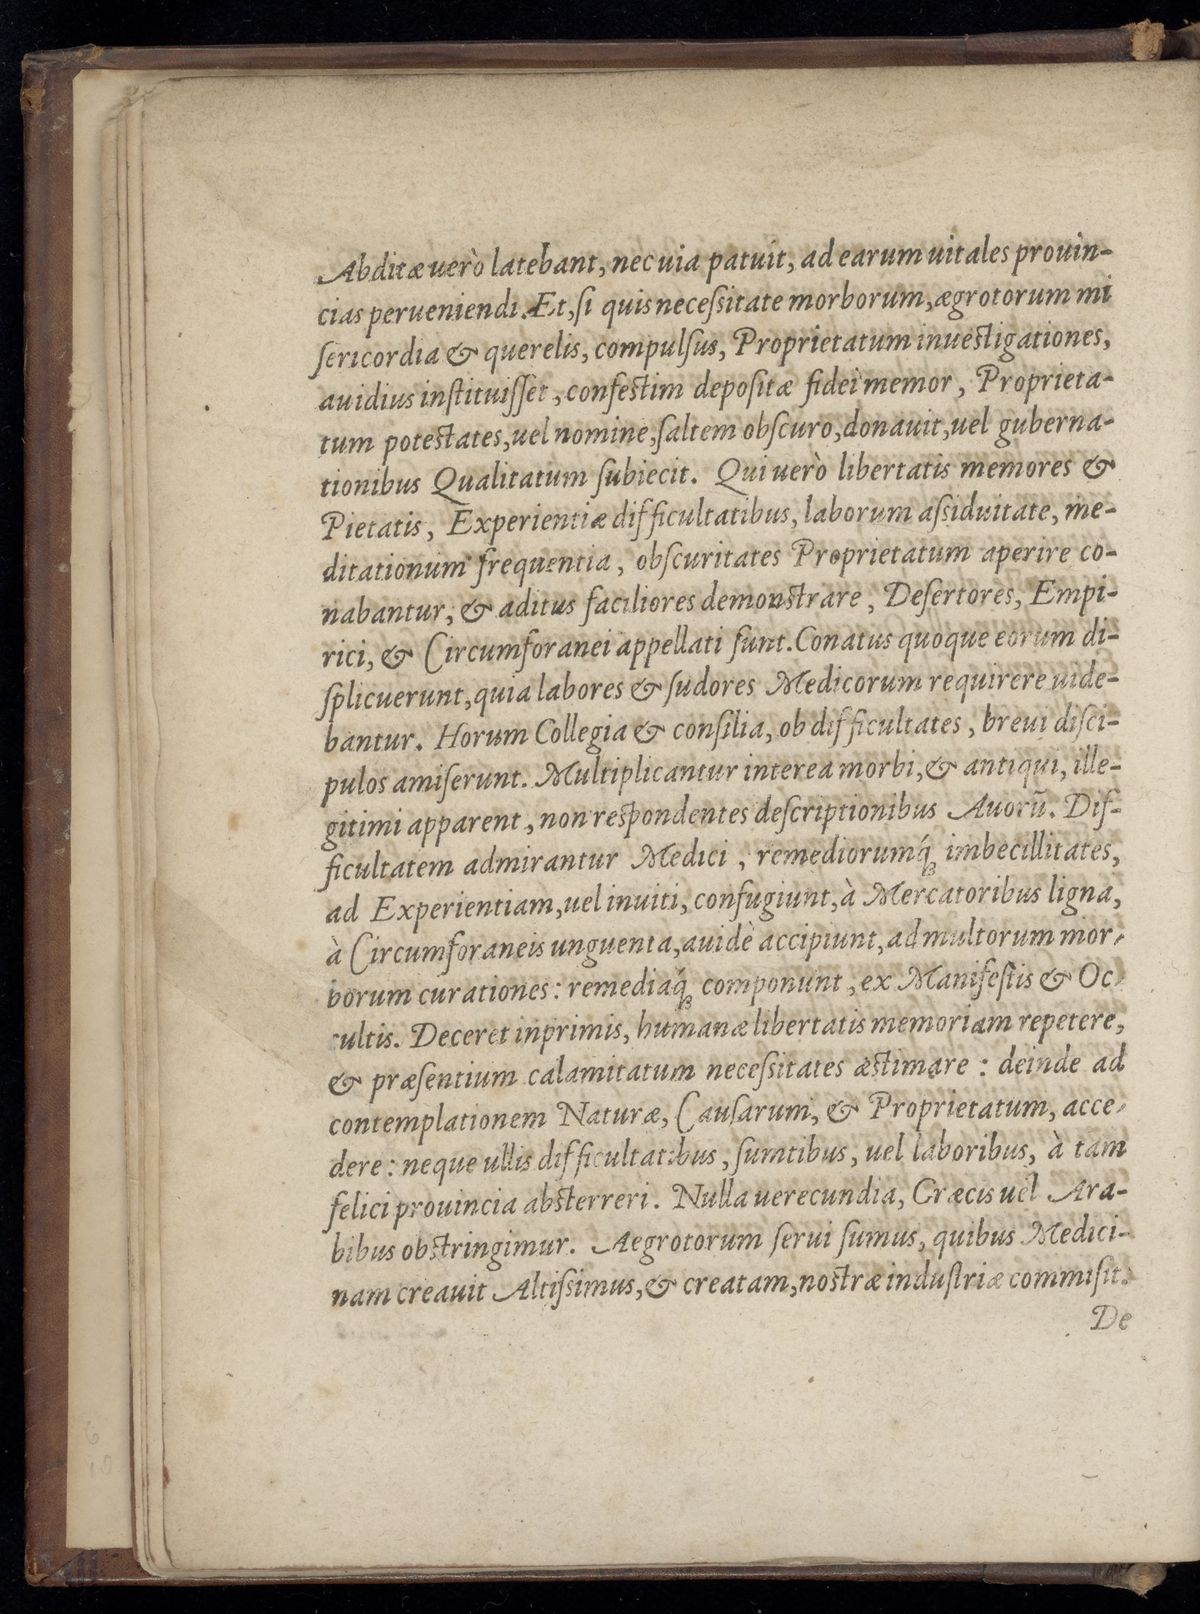 Abditæ uerò latebant, nec uia patuit, ad earum uitales prouin-
cias perueniendi. Et, ſi quis neceſsitate morborum, ægrotorum mi
ſericordia & querelis, compulſus, Proprietatum inueſtigationes,
auidius inſtituiſſet, confeſtim depoſitæ fidei memor, Proprieta-
tum poteſtates, uel nomine, ſaltem obſcuro, donauit, uel guberna-
tionibus Qualitatum ſubiecit. Qui uerò libertatis memores &
Pietatis, Experientiæ difficultatibus, laborum aſsiduitate, me-
ditationum frequentia, obſcuritates Proprietatum aperire co-
nabantur, & aditus faciliores demonſtrare, Deſertores, Empi-
rici, & Circumforanei appellati ſunt. Conatus quoque eorum di-
ſplicuerunt, quia labores & ſudores Medicorum requirere uide-
bantur. Horum Collegia & conſilia, ob difficultates, breui diſci-
pulos amiſerunt. Multiplicantur interea morbi, & antiqui, ille-
gitimi apparent, non reſpondentes deſcriptionibus Auorū. Dif-
ficultatem admirantur Medici, remediorumq́ꝫ imbecillitates,
ad Experientiam, uel inuiti, confugiunt, à Mercatoribus ligna,
à Circumforaneis unguenta, auidè accipiunt, ad multorum mor-
borum curationes: remediaq́ꝫ componunt, ex Manifeſtis & Oc-
cultis. Deceret inprimis, humanæ libertatis memoriam repetere,
& præſentium calamitatum neceſsitates æſtimare: deinde ad
contemplationem Naturæ, Cauſarum, & Proprietatum, acce-
dere: neque ullis difficultatibus, ſumtibus, uel laboribus, à tam
felici prouincia abſterreri. Nulla uerecundia, Græcis uel Ara-
bibus obſtringimur. Aegrotorum ſerui ſumus, quibus Medici-
nam creauit Altiſsimus, & creatam, noſtræ induſtriæ commiſit.
De